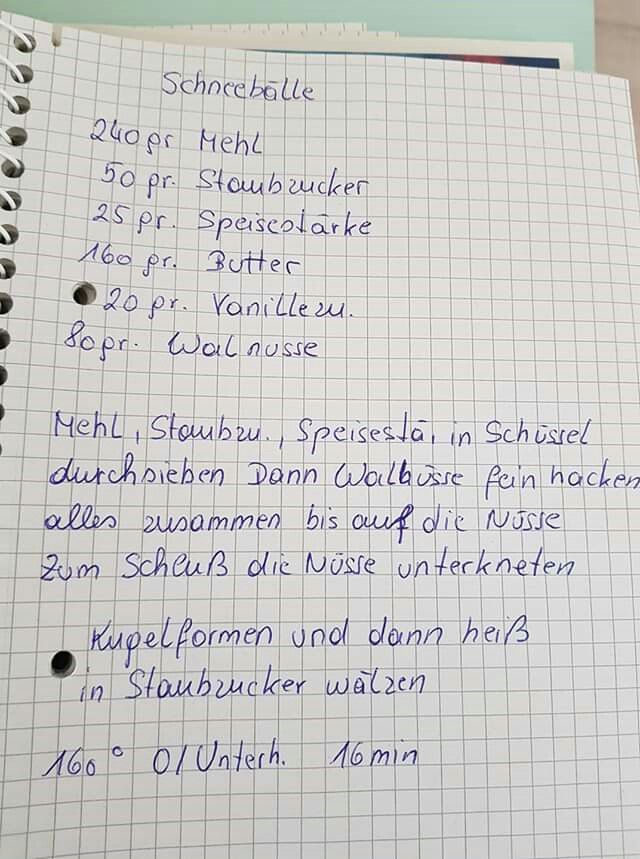 Schneebälle
240 gr Mehl
50 gr. Staubzucker
25 gr. Speisestärke
160 gr. Butter
20 gr. Vanillezu.
80 gr. Walnüsse
Mehl, Staubzu., Speisestä, in Schüssel
durchsieben Dann Walnüsse fein hacken
alles zusammen bis auf die Nüsse
zum Schluß die Nüsse unterkneten
Kugelformen und dann heiß
in Staubzucker wälzen
160° O/Unterh. 16 min